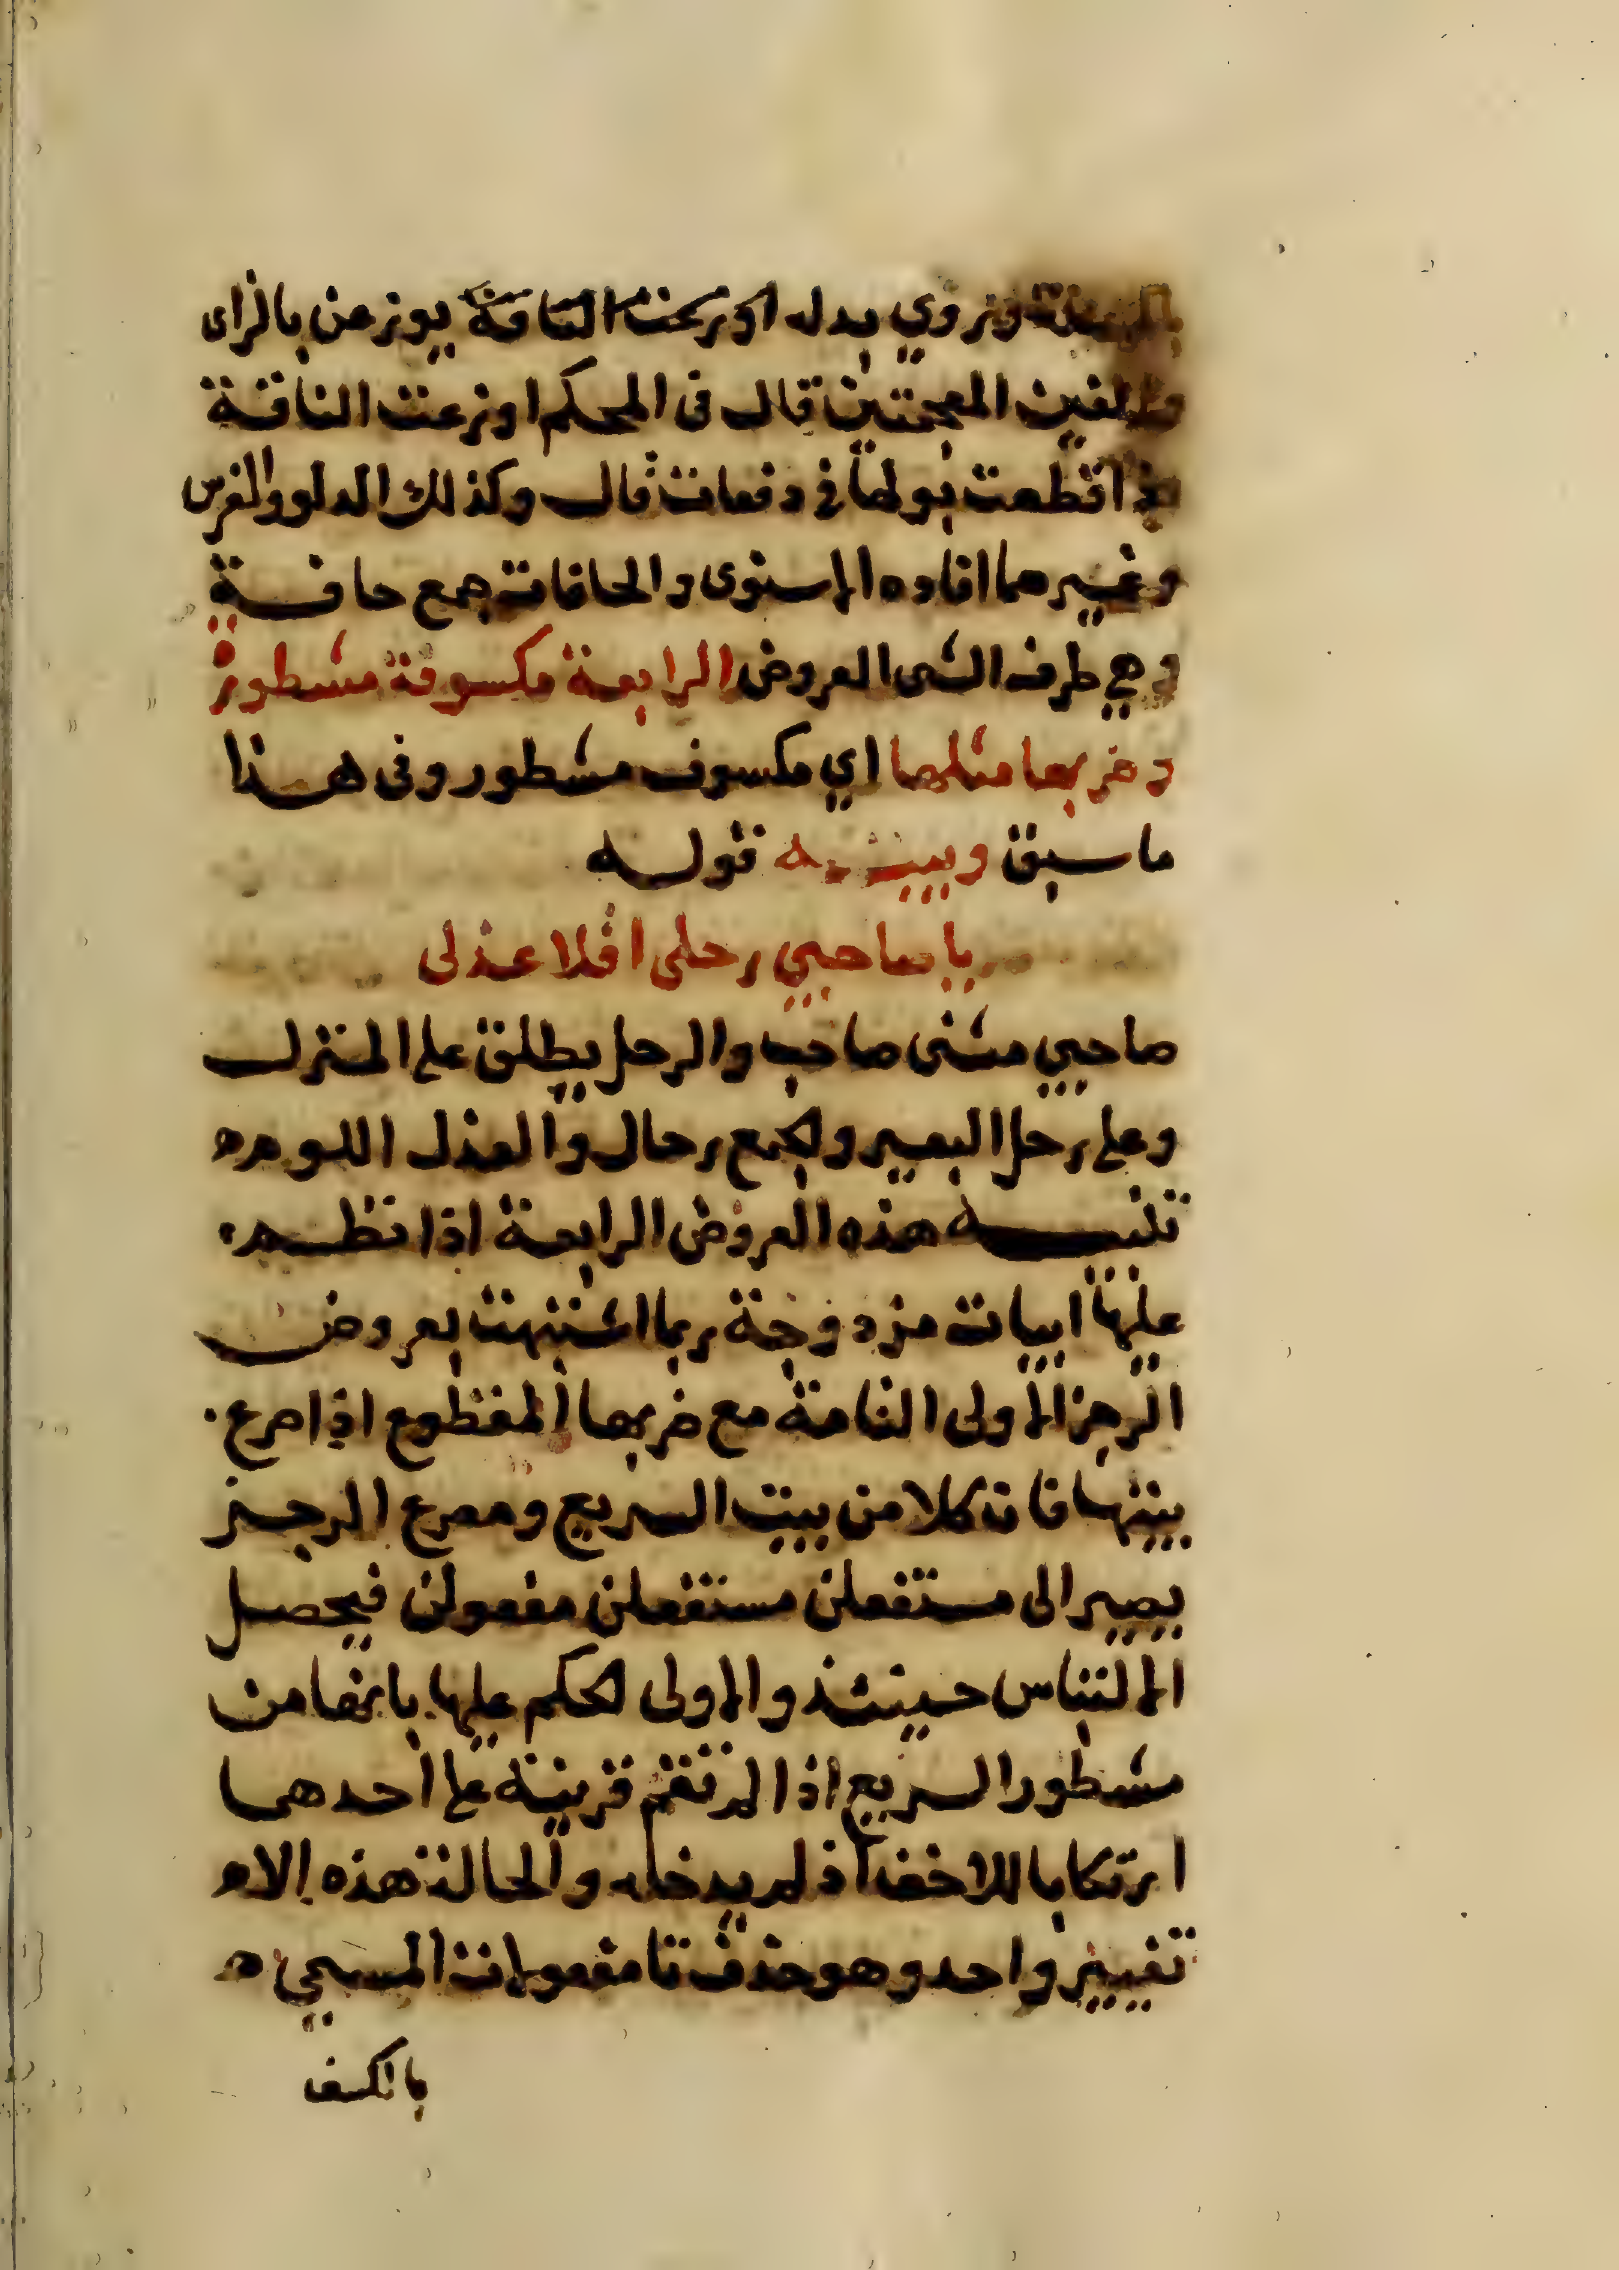 وروي بدله اوزغت الناقة يوزغن بالزاى
والغين المعجمتين قال فى المحكم اوزعت الناقة
اذا قطعت بولها فى دفعات قال وكذلك الدلو والفرس
وغيرهما افاده الاسنوى والحافات جمع حافة
وهى طرف الشى العروض الرابعة مكسوفة مشطورة
وضربها مثلها اي مكسوف مشطور وفى هذا
ما سبق وبيته قوله
يا صاحبي رحلى اقلا عذلى
صاحبي مثنى صاحب والرحل يطلق على المنزل
وعلى رحل البعير والجمع رحال والعذل اللوم
تنبيه هذه العروض الرابعة اذا نظم
عليها ابيات مزدوجة ربما اشتبهت بعروض
الرجز الاولى التامة مع ضربها المقطوع اذا صرع
بيتها فان كلا من بيت السريع ومصرع الرجز
يصير الى مستفعلن مستفعلن مفعولن فيحصل
الالتباس حينئذ والاولى الحكم عليها بانها من
مشطور السريع اذا لم تقم قرينة على احدهما
ارتكابا للاخف اذ لم يدخله والحالة هذه الا
تغيير واحد وهو حذف تا مفعولات المسمى
بالكسف